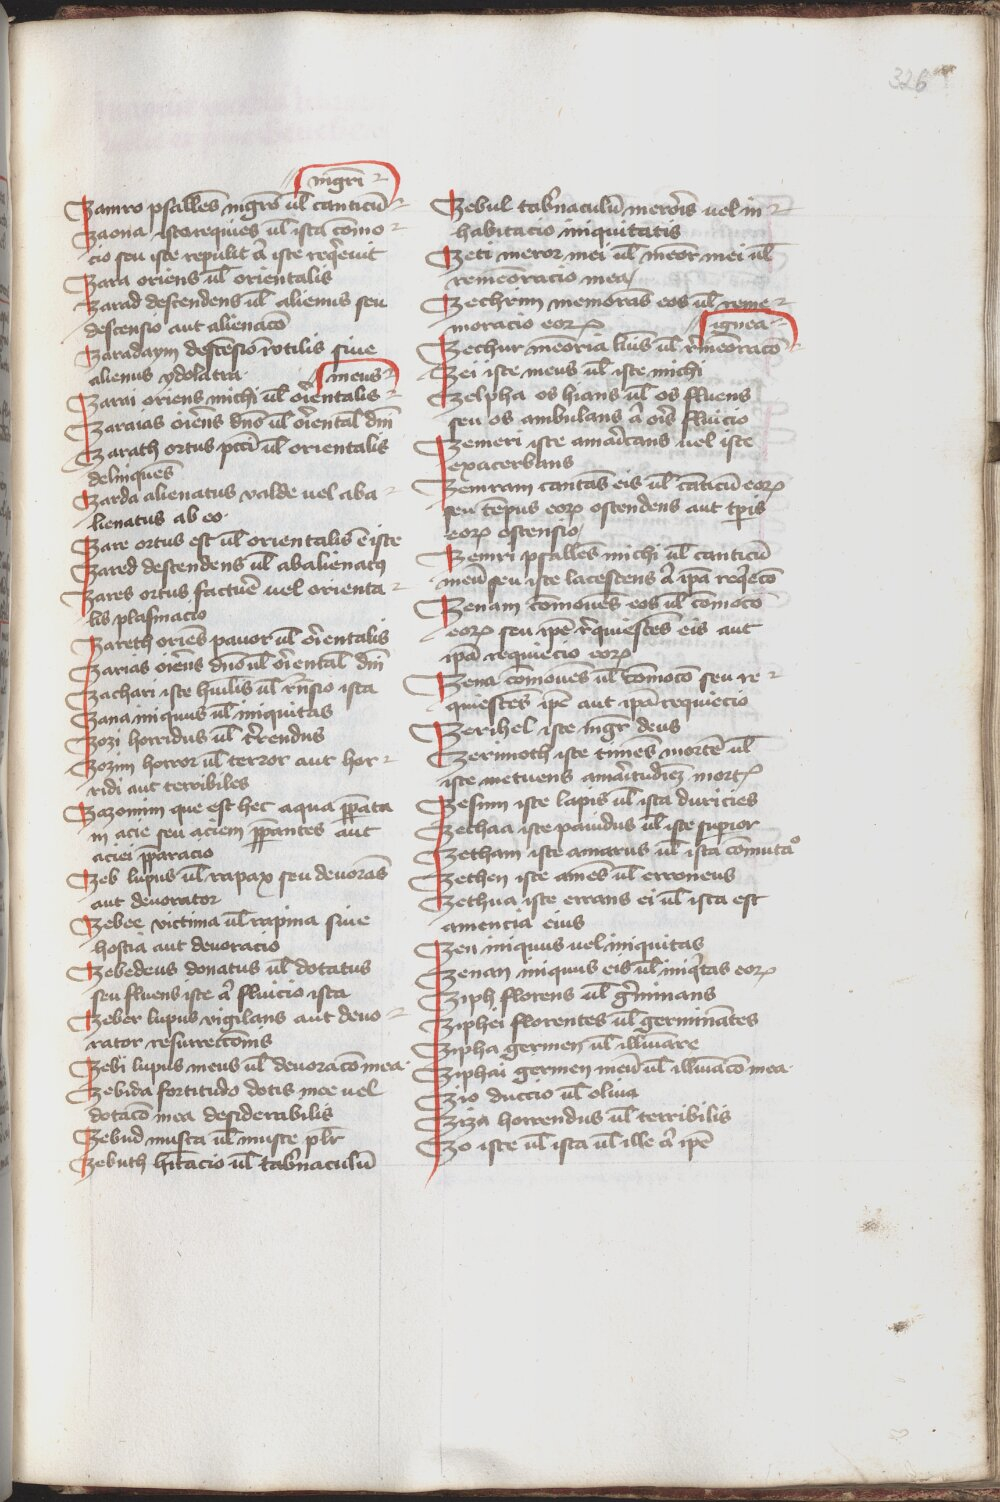 326
nigri
Zamro psallēs nigrō ul̄ canticū
Zaona iste requies ul̄ ista cōmo
cio seu iste repulit a͛ iste req͛euit
Zara oriens ul̄ orientalis
Zarad descendens ul̄ alienus seu
descensio aut alienacō
Zaradaym descensio rutilis siue
alienus ydolatra
meus
Zarai oriens michi ul̄ orientalis
Zaraias oriēns dn̄o ul̄ oriental̄ dn̄i
Zarath ortus pctī ul̄ orientalis
delinquēs
Zarda alienatus valde uel aba
lienatus ab eo
Zare ortus est ul̄ orientalis ē iste
Zared descendens ul̄ abalienatꝰ
Zares ortus facture uel orienta
lis plasmacio
Zareth oriēs pauor ul̄ orientalis
Zarias oriēns dn̄o ul̄ oriental̄ dn̄i
Zachari iste humilis ul̄ rn̄sio ista
Zana iniquus ul̄ iniquitas
Zozi horridus ul̄ t͛rendus
Zozim horror ul̄ terror aut hor
ridi aut terribiles
Zazomim que est hec aqua p̄pata
in acie seu aciem p̄pantes aut
aciei p̄paracio
Zeb lupus ul̄ rapax seu deuorās
aut deuorator
Zebee victima ul̄ rapina siue
hostia aut deuoracio
Zebedeus donatus ul̄ dotatus
seu fluens iste a͛ fluicio ista
Zeber lupus vigilans aut deuo
rator resurrectōnis
Zebi lupus meus ul̄ deuoracō mea
Zebida fortitudo dotis mee uel
dotacō mea desiderabilis
Zebud musca ul̄ musce pl͛r
Zebuth hītacio ul̄ tab͛naculū
Zebul tab͛naculū meroris uel in
habitacio iniquitatis
Zeti meror mei ul̄ memor mei ul̄
rememoracio mea
Zechrim memorās eos ul̄ reme
moracio eorꝝ
ignea
Zechur memoria luīs ul̄ r͛meōracō
Zei iste meus ul̄ iste michi
Zelpha os hians ul̄ os fluens
seu os ambulans a͛ oris fluicio
Zemeri iste amaricans uel iste
exacerbans
Zemram cantās eis ul̄ cāticū eorꝝ
seu tēpus eorꝝ ostendens aut tp̄is
eorꝝ ostensio
Zemri psallēs michi ul̄ canticū
meū seu iste lacescens a͛ ip̄a req͛ecō
Zenam cōmouēs eos ul̄ cōmocō
eorꝝ seu ip̄e r͛quiescēs eis aut
ip̄a requiecio eorꝝ
Zena cōmouēs ul̄ cōmocō seu re
quiescēs ip̄e aut ip̄a requiecio
Zerihel iste nigr̄ deus
Zerimoth iste timēs mortē ul̄
iste metuens amaritudīeꝫ mortꝭ
Zesum iste lapis ul̄ ista duricies
Zechaa iste pauidus ul̄ iste superior
Zetham iste amarus ul̄ ista cōmutaͦ
Zethen iste amēs ul̄ erroneus
Zethua iste errans ei ul̄ ista est
amencia eius
Zen iniquus uel iniquitas
Zenan iniquus eis ul̄ iniq͛tas eorꝝ
Ziph florens ul̄ g͛minans
Ziphei florentes ul̄ germinātes
Zipha germen ul̄ illiuiare
Ziphai germen meū ul̄ illiuiacō mea
Zio duccio ul̄ oliua
Ziza horrendus ul̄ terribilis
Zo iste ul̄ ista ul̄ ille a͛ ip̄e